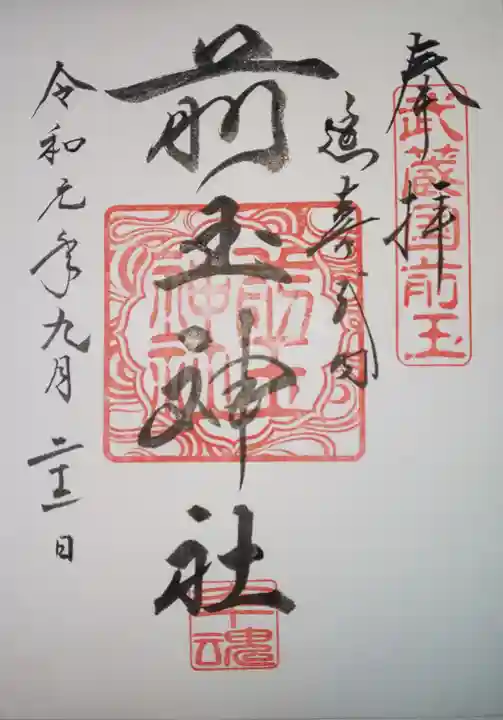 奉拝
武蔵国前玉
延喜式内
前玉神社
前玉神社
幸魂
令和元年九月二十一日